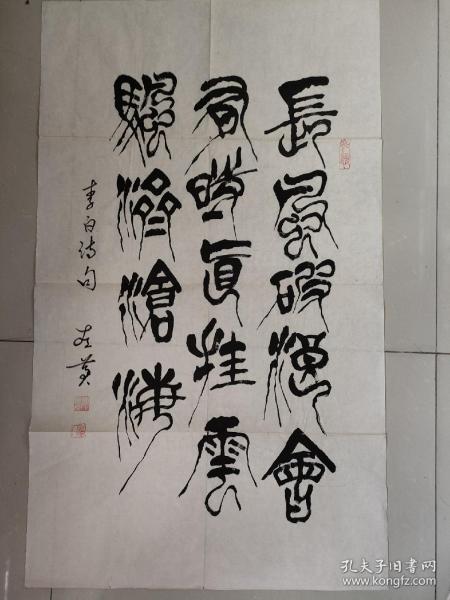 長風破浪會
有時直挂雲
颿濟滄海
李白诗句
孔夫子旧书网
www.kongfz.com